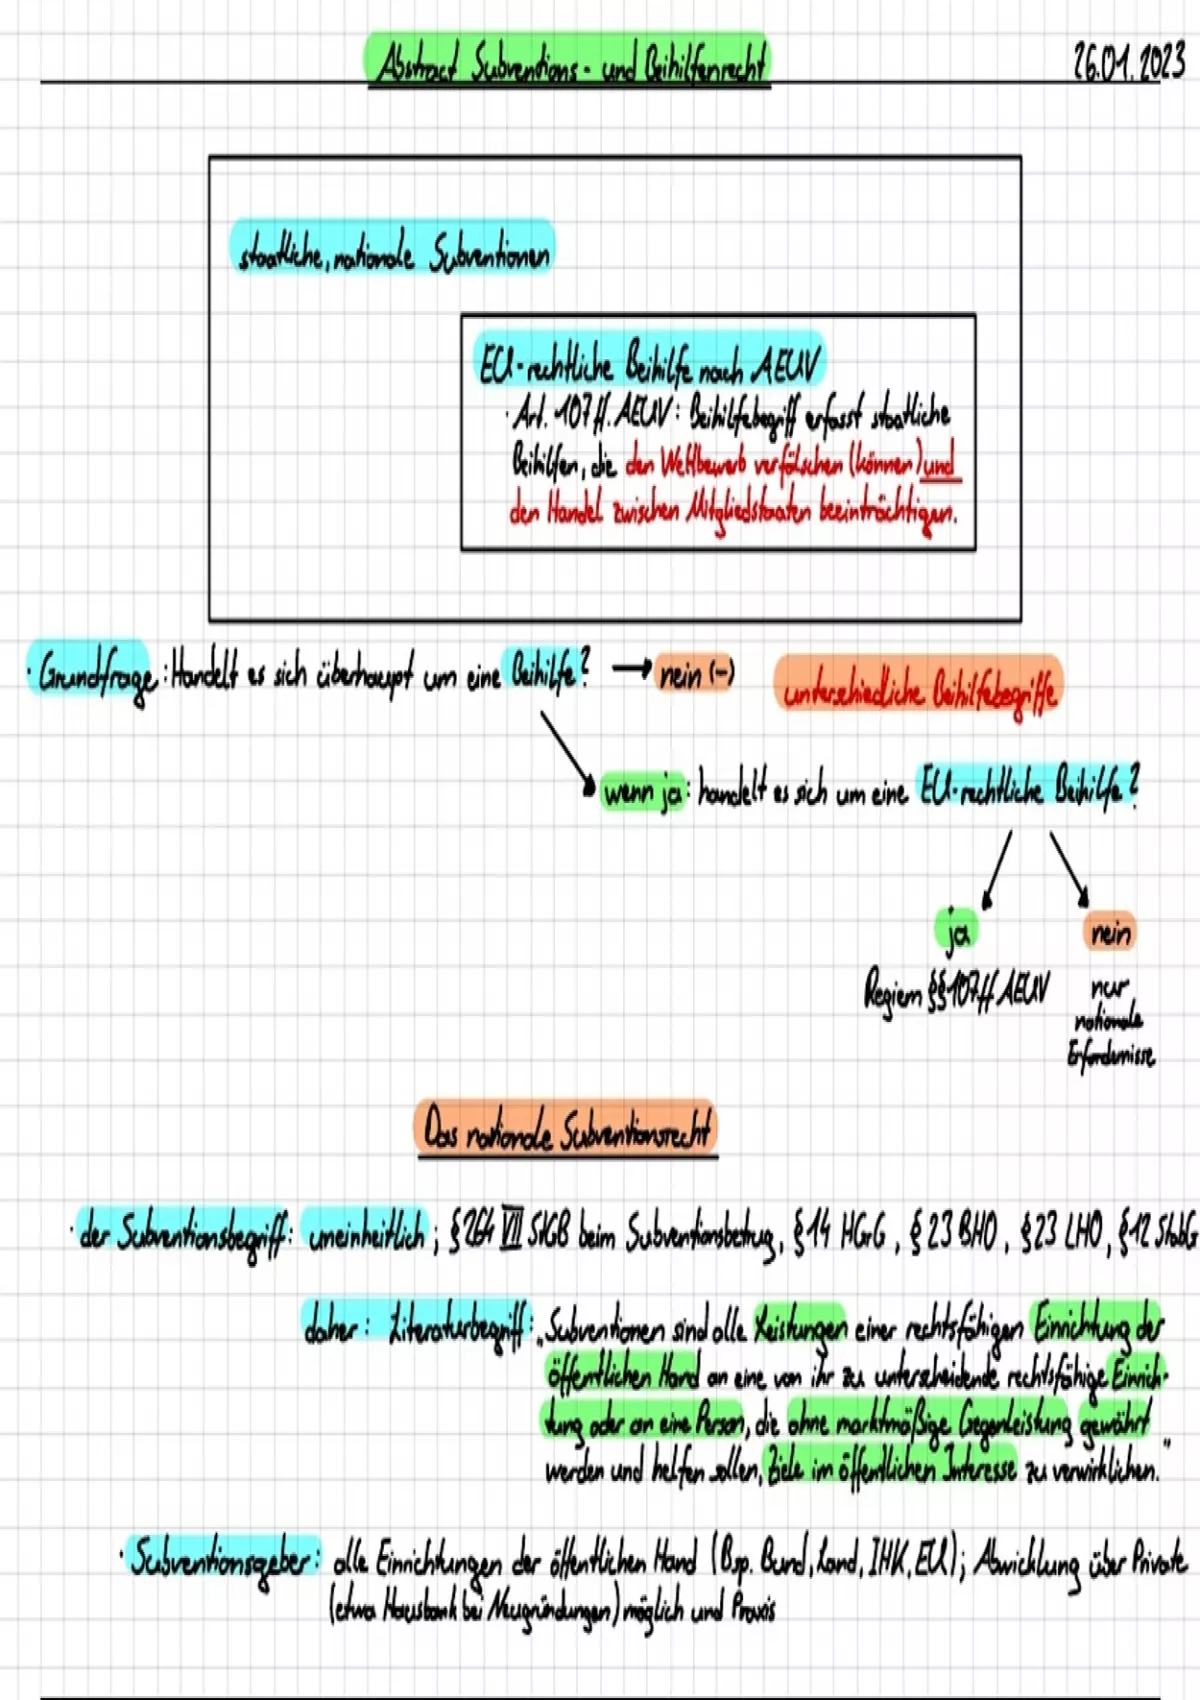 Abstract Subventions- und Beihilfenrecht
26.01.2023
staatliche, nationale Subventionen
EU-rechtliche Beihilfe nach AEUV
· Art. 107 ff. AEUV: Beihilfebegriff erfasst staatliche
Beihilfen, die den Wettbewerb verfälschen (können) und
den Handel zwischen Mitgliedstaaten beeinträchtigen.
· Grundfrage: Handelt es sich überhaupt um eine Beihilfe? → nein (-)
unterschiedliche Beihilfebegriffe
wenn ja: handelt es sich um eine EU-rechtliche Beihilfe?
ja
nein
Regiem §§107ff AEUV
nur
nationale
Erfordernisse
Das nationale Subventionsrecht
· der Subventionsbegriff: uneinheitlich; §264 VII StGB beim Subventionsbetrug, §14 HGrG, §23 BHO, §23 LHO, §12 StabG
daher: Literaturbegriff: „Subventionen sind alle Leistungen einer rechtsfähigen Einrichtung der
öffentlichen Hand an eine von ihr zu unterscheidende rechtsfähige Einrich-
tung oder an eine Person, die ohne marktmäßige Gegenleistung gewährt
werden und helfen sollen, Ziele im öffentlichen Interesse zu verwirklichen."
· Subventionsgeber: alle Einrichtungen der öffentlichen Hand (Bsp. Bund, Land, IHK, EU); Abwicklung über Private
(etwa Hausbank bei Neugründungen) möglich und Praxis